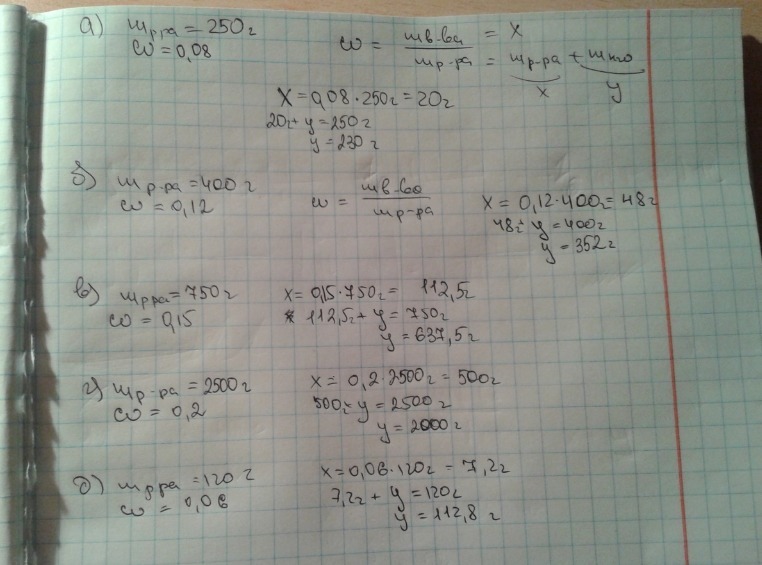 а) mр-ра = 250г
ω = 0,08
ω = mв-ва / mр-ра = x / = mр-ра + mH2O
x y
x = 0,08·250г = 20г
20г + y = 250г
y = 230г
б) mр-ра = 400г
ω = 0,12
ω = mв-ва / mр-ра
x = 0,12·400г = 48г
48г + y = 400г
y = 352г
в) mр-ра = 750г
ω = 0,15
x = 0,15·750г = 112,5г
112,5г + y = 750г
y = 637,5г
г) mр-ра = 2500г
ω = 0,2
x = 0,2·2500г = 500г
500г + y = 2500г
y = 2000г
д) mр-ра = 120г
ω = 0,06
x = 0,06·120г = 7,2г
7,2г + y = 120г
y = 112,8г